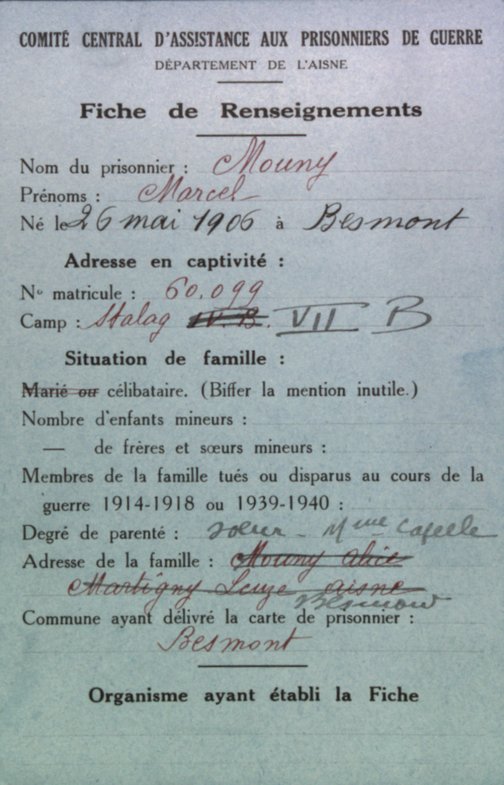 COMITÉ CENTRAL D'ASSISTANCE AUX PRISONNIERS DE GUERRE
DÉPARTEMENT DE L'AISNE
Fiche de Renseignements
Nom du prisonnier : Mouny
Prénoms : Marcel
Né le 26 mai 1906 à Besmont
Adresse en captivité :
No matricule : 60.099
Camp : Stalag IV.B. VII B
Situation de famille :
Marié ou célibataire. (Biffer la mention inutile.)
Nombre d'enfants mineurs :
— de frères et sœurs mineurs :
Membres de la famille tués ou disparus au cours de la
guerre 1914-1918 ou 1939-1940 :
Degré de parenté : soeur - Mme
Adresse de la famille : Mouny
Martigny Leuze aisne
Besmont
Commune ayant délivré la carte de prisonnier :
Besmont
Organisme ayant établi la Fiche